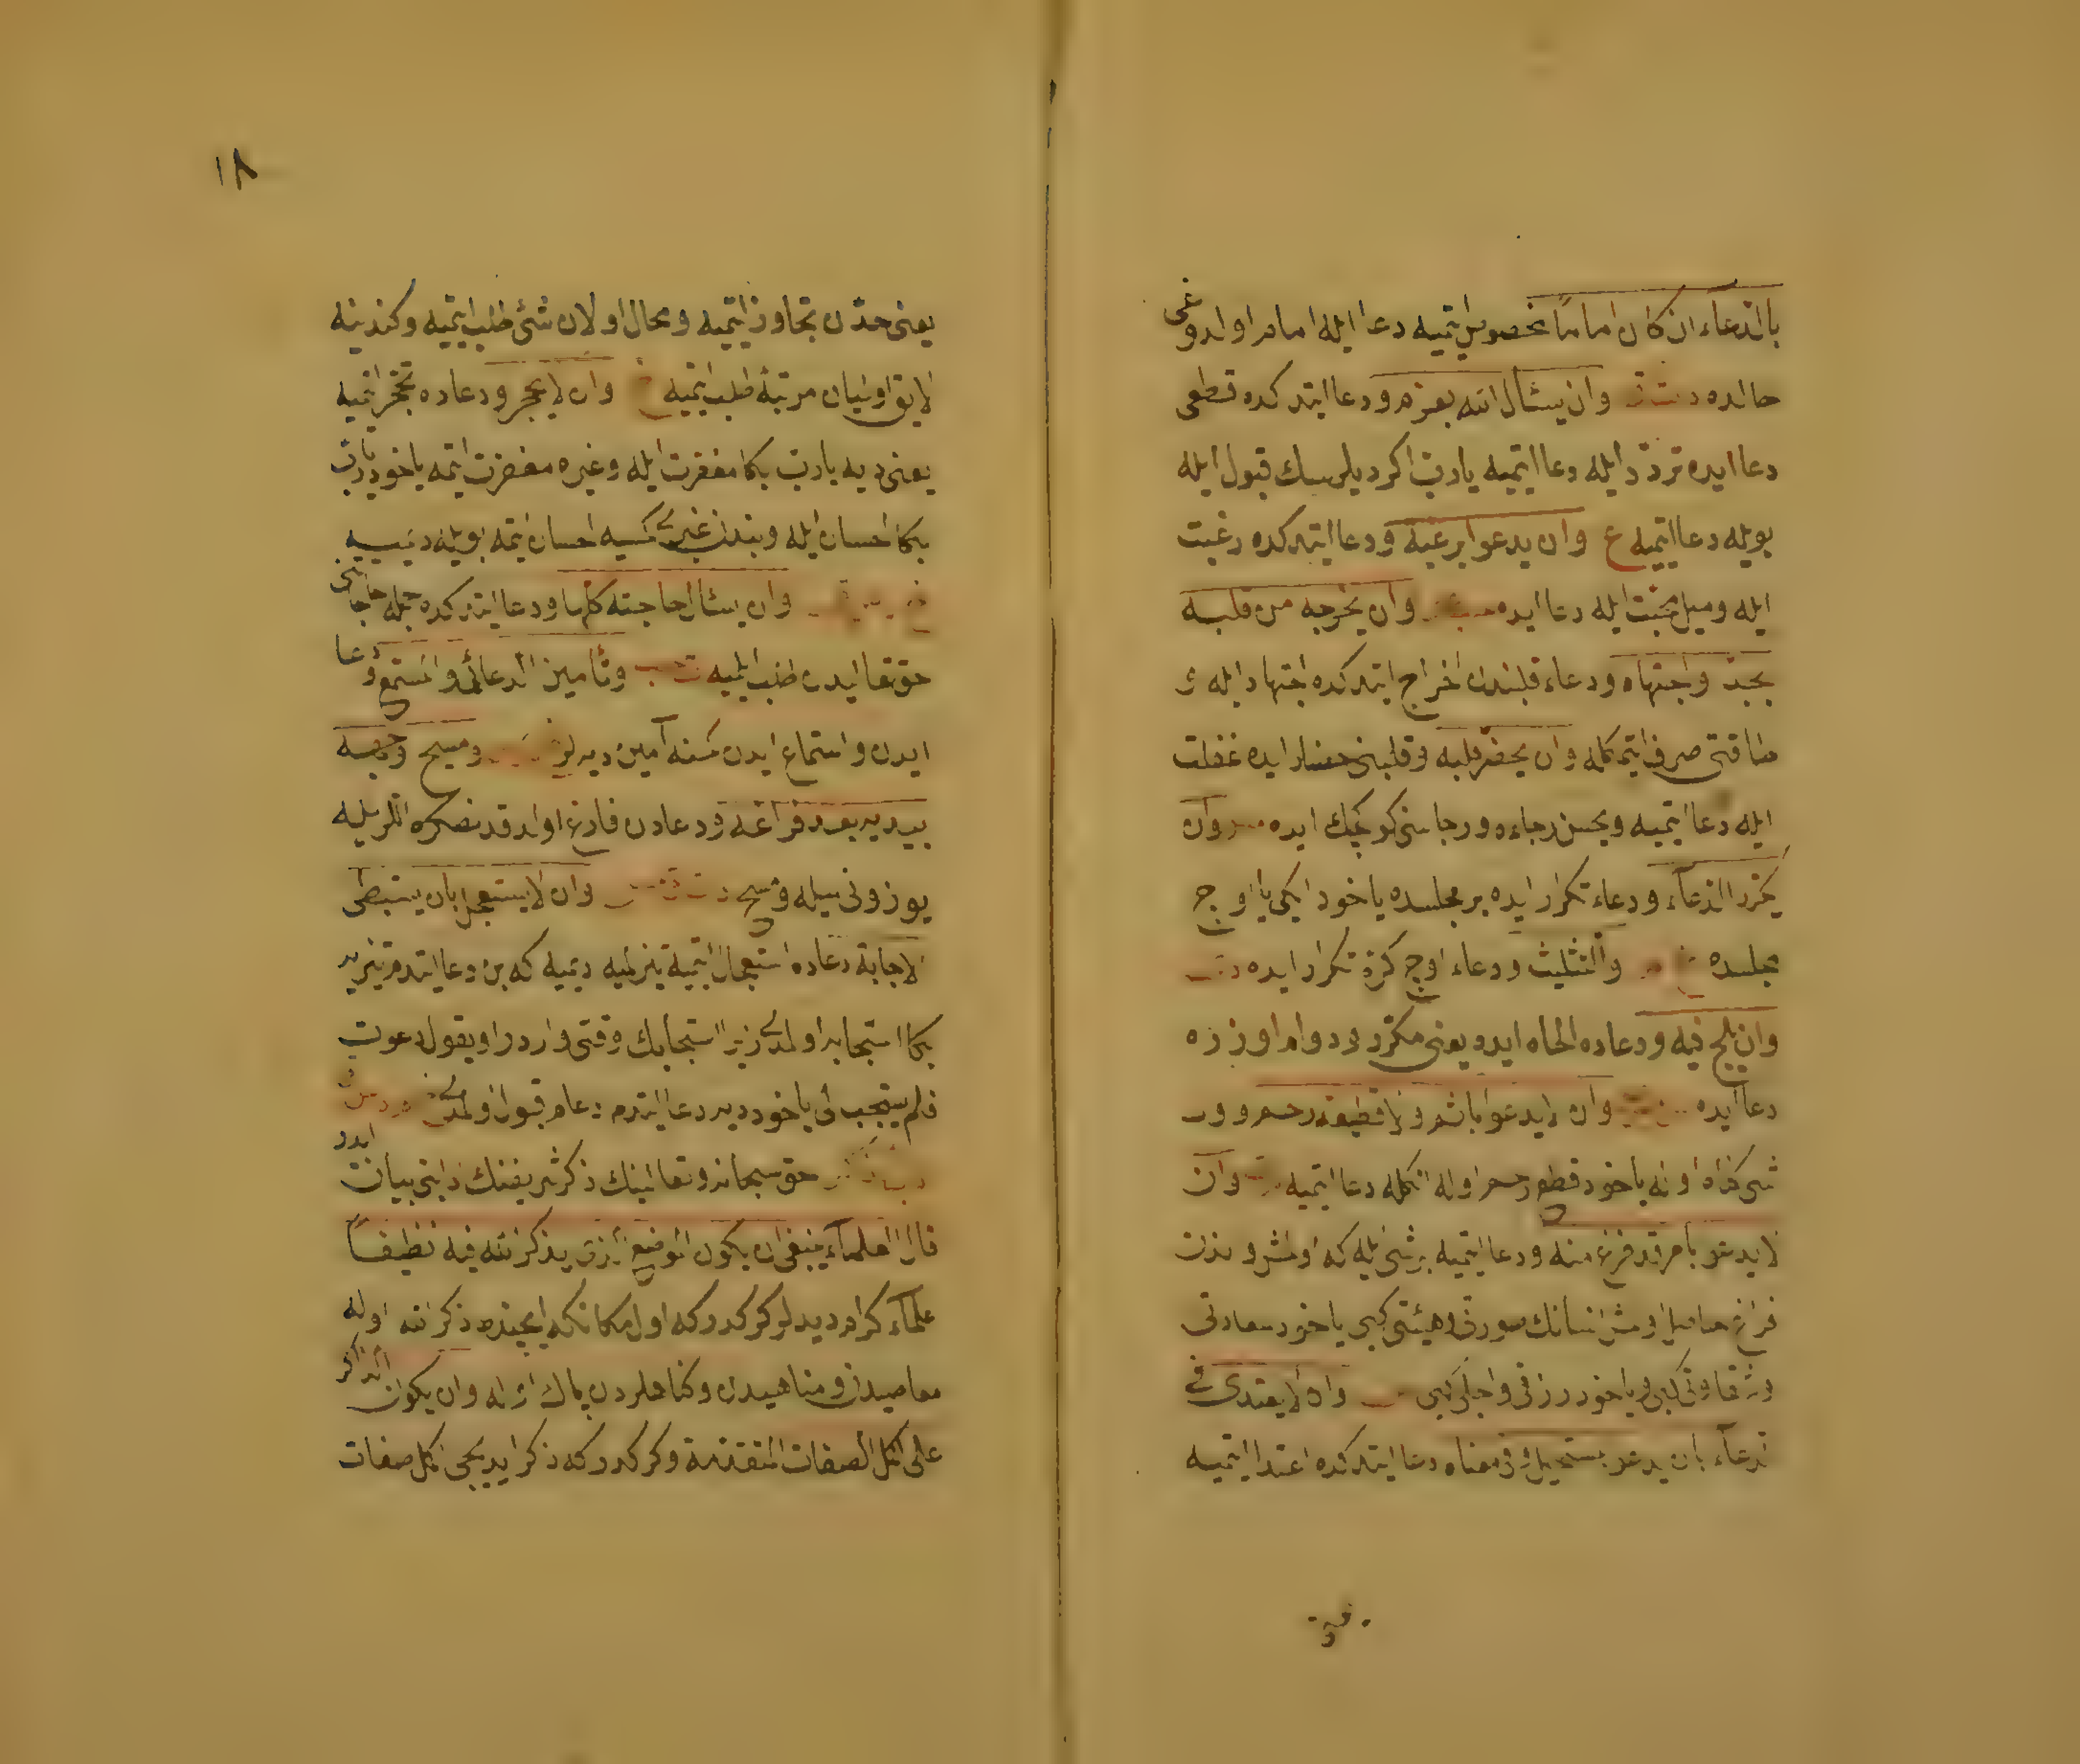 بالدعاء ان كان اماما تخصيص ايتميه دعا ايله امام اولدوغى
حالده د ت ق وان يسأل الله بعزم ودعا ايتدكده قطعى
دعا ايده تردد ايله دعا ايتميه يا رب اكر ديلرسك قبول ايله
بويله دعا ايتميه ع وان يدعو برغبة ودعا ايتدكده رغبت
ايله وميل محبت ايله دعا ايده وان يخرجه من قلبه
بجد واجتهاد ودعاء قلبندن اخراج ايتدكده اجتهاد ايله و
طاقتى صرف ايتمكله وان يحضر قلبه وقلبنى حضار ايده غفلت
ايله دعا ايتميه ويحسن رجاءه ورجاسنى كوكچك ايده وان
يكرر الدعاء ودعاء تكرار ايده بر مجلسده ياخود ايكى يا اوچ
مجلسده والتثليث ودعاء اوچ كرة تكرار ايده
وان يلح فيه ودعاده الحاح ايده يعنى مكرر ودوام اوزره
دعا ايده وان لا يدعو باثم ولا قطيعة رحم و
شى كناه اوله ياخود قطع رحم اوله انكله دعا ايتميه وان
لا يدعو بامر قد فرغ منه ودعا ايتميه بر شى ايله كه اولمش و اندن
فراغ حاصل اولمش انسانك صورتى وهيئتى كبى ياخود سعادتى
وشقاوتى كبى وياخود رزقى واجلى كبى وان لا يعتدى فى
الدعاء بان يدعو بمستحيل وفى معناه دعا ايتدكده اعتدا ايتميه
يعنى
١٨
يعنى حددن تجاوز ايتميه ومحال اولان شئ طلب ايتميه وكندينه
لايق اولميان مرتبه طلب ايتميه خ وان لا يتحجر ودعاده تحجر ايتميه
يعنى ديه يا رب بكا مغفرت ايله وغيره مغفرت ايتمه ياخود يا رب
بكا احسان ايله وبندن غيرى كمسيه احسان ايتمه بويله ديميه
وان يسأل حاجته كلها ودعا ايتدكده جمله حاجاتنى
حق تعاليدن طلب ايليه وتأمين الداعى والمستمع ودعا
ايدن واستماع ايدن كمسنه آمين ديه لر ومسح وجهه
بيديه بعد فراغه ودعادن فارغ اولدقدنصكره اللريله
يوزونى سيله ومسح وان لا يستعجل بان يستبطئ
الاجابة دعاده استعجال ايتميه تيزلميه ديميه كه بن دعا ايتدم نيچون
بكا استجابه اولمدى زيرا استجابك وقتى واردر او يقول دعوت
فلم يستجب لى ياخود ديه دعا ايتدم دعام قبول اولمدى
حق سبحانه وتعالينك ذكر شريفنك ادابنى بيان ايدر
قال العلماء ينبغى ان يكون الموضع الذى يذكر الله فيه نظيفا
علماء كرام ديديلر كركدر كه اول مكانكه ايچنده ذكر الله اوله
معاصيدن ومناهيدن وكناهلردن پاك اوله وان يكون الذاكر
على اكمل الصفات المتقدمة وكركدر كه ذكر ايديجى اكمل صفات